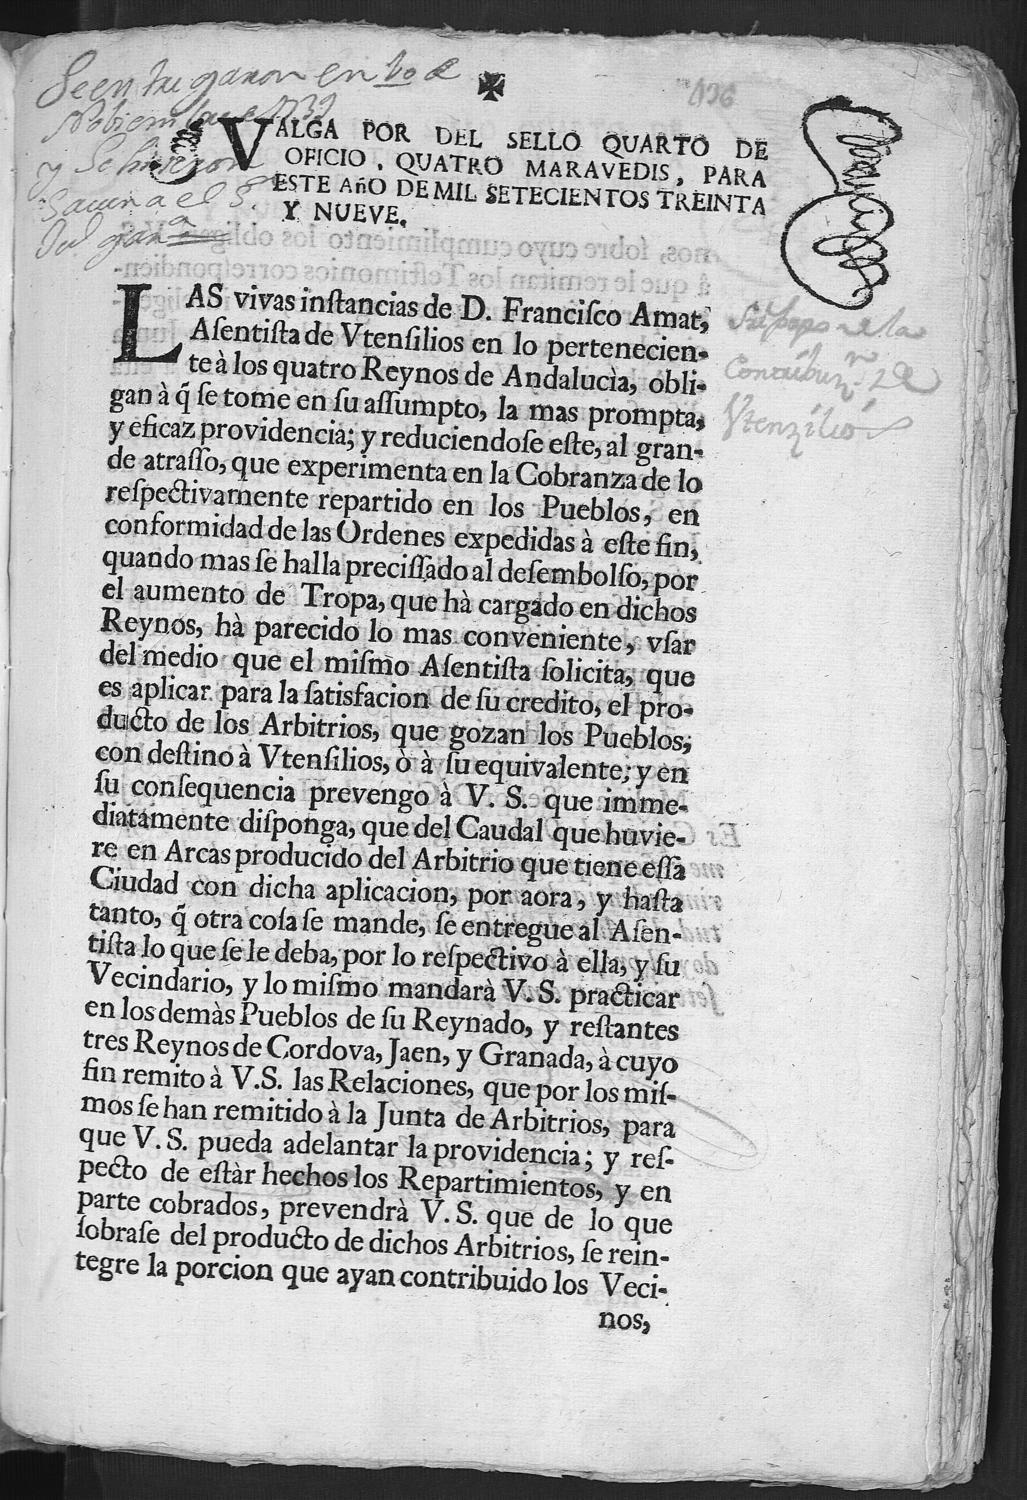 Se entregaron en 10 de
Nobiembre de 1739
y Se hicieron
✠
VALGA POR DEL SELLO QUARTO DE
OFICIO, QUATRO MARAVEDIS, PARA
ESTE Año DE MIL SETECIENTOS TREINTA
Y NUEVE.
LAS vivas inſtancias de D. Franciſco Amat,
Aſentiſta de Vtenſilios en lo pertenecien-
te à los quatro Reynos de Andalucìa, obli-
gan à q̃ ſe tome en ſu aſſumpto, la mas prompta,
y eficaz providencia; y reduciendoſe eſte, al gran-
de atraſſo, que experimenta en la Cobranza de lo
reſpectivamente repartido en los Pueblos, en
conformidad de las Ordenes expedidas à eſte fin,
quando mas ſe halla preciſſado al deſembolſo, por
el aumento de Tropa, que hà cargado en dichos
Reynos, hà parecido lo mas conveniente, vſar
del medio que el miſmo Aſentiſta ſolicita, que
es aplicar para la ſatisfacion de ſu credito, el pro-
ducto de los Arbitrios, que gozan los Pueblos,
con deſtino à Vtenſilios, ò à ſu equivalente; y en
ſu conſequencia prevengo à V. S. que imme-
diatamente diſponga, que del Caudal que huvie-
re en Arcas producido del Arbitrio que tiene eſſa
Ciudad con dicha aplicacion, por aora, y haſta
tanto, q̃ otra coſa ſe mande, ſe entregue al Aſen-
tiſta lo que ſe le deba, por lo reſpectivo à ella, y ſu
Vecindario, y lo miſmo mandarà V.S. practicar
en los demàs Pueblos de ſu Reynado, y reſtantes
tres Reynos de Cordova, Jaen, y Granada, à cuyo
fin remito à V.S. las Relaciones, que por los miſ-
mos ſe han remitido à la Junta de Arbitrios, para
que V.S. pueda adelantar la providencia; y reſ-
pecto de eſtàr hechos los Repartimientos, y en
parte cobrados, prevendrà V.S. que de lo que
ſobraſe del producto de dichos Arbitrios, ſe rein-
tegre la porcion que ayan contribuido los Veci-
nos,
de la
Contribuz.n de
Vtenzilios